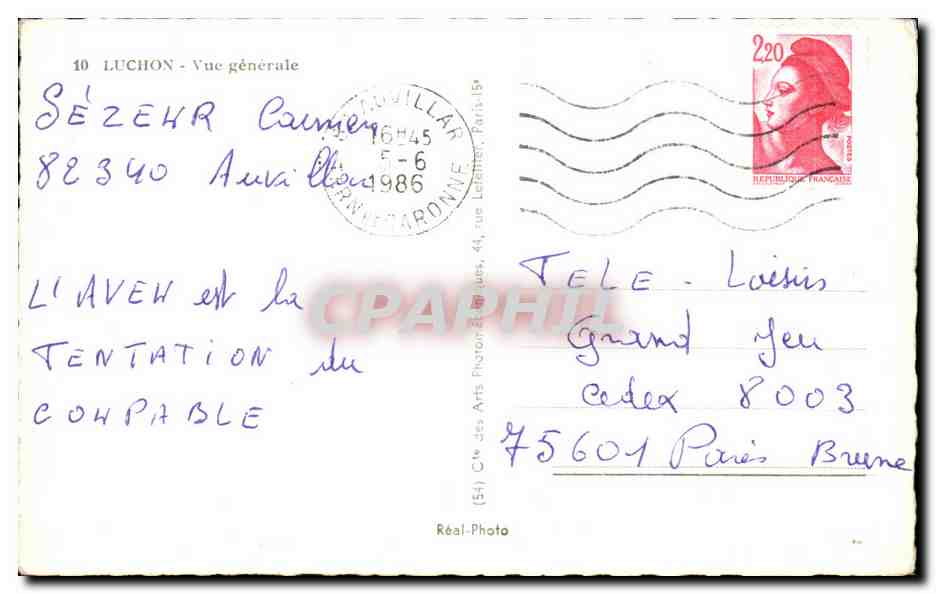 10 LUCHON - Vue générale
SÉZEUR Carmen
82340 Auvillar
L'AVEU est la
TENTATION du
COUPABLE
AUVILLAR
16H45
5-6
1986
TARN ET GARONNE
2,20
POSTES
REPUBLIQUE FRANÇAISE
TELE - Loisirs
Grand Jeu
Cedex 8003
75601 Paris Brune
(54) Cie des Arts Photomécaniques, 44, rue Letellier, Paris-15e
Réal-Photo
CPAPHIL